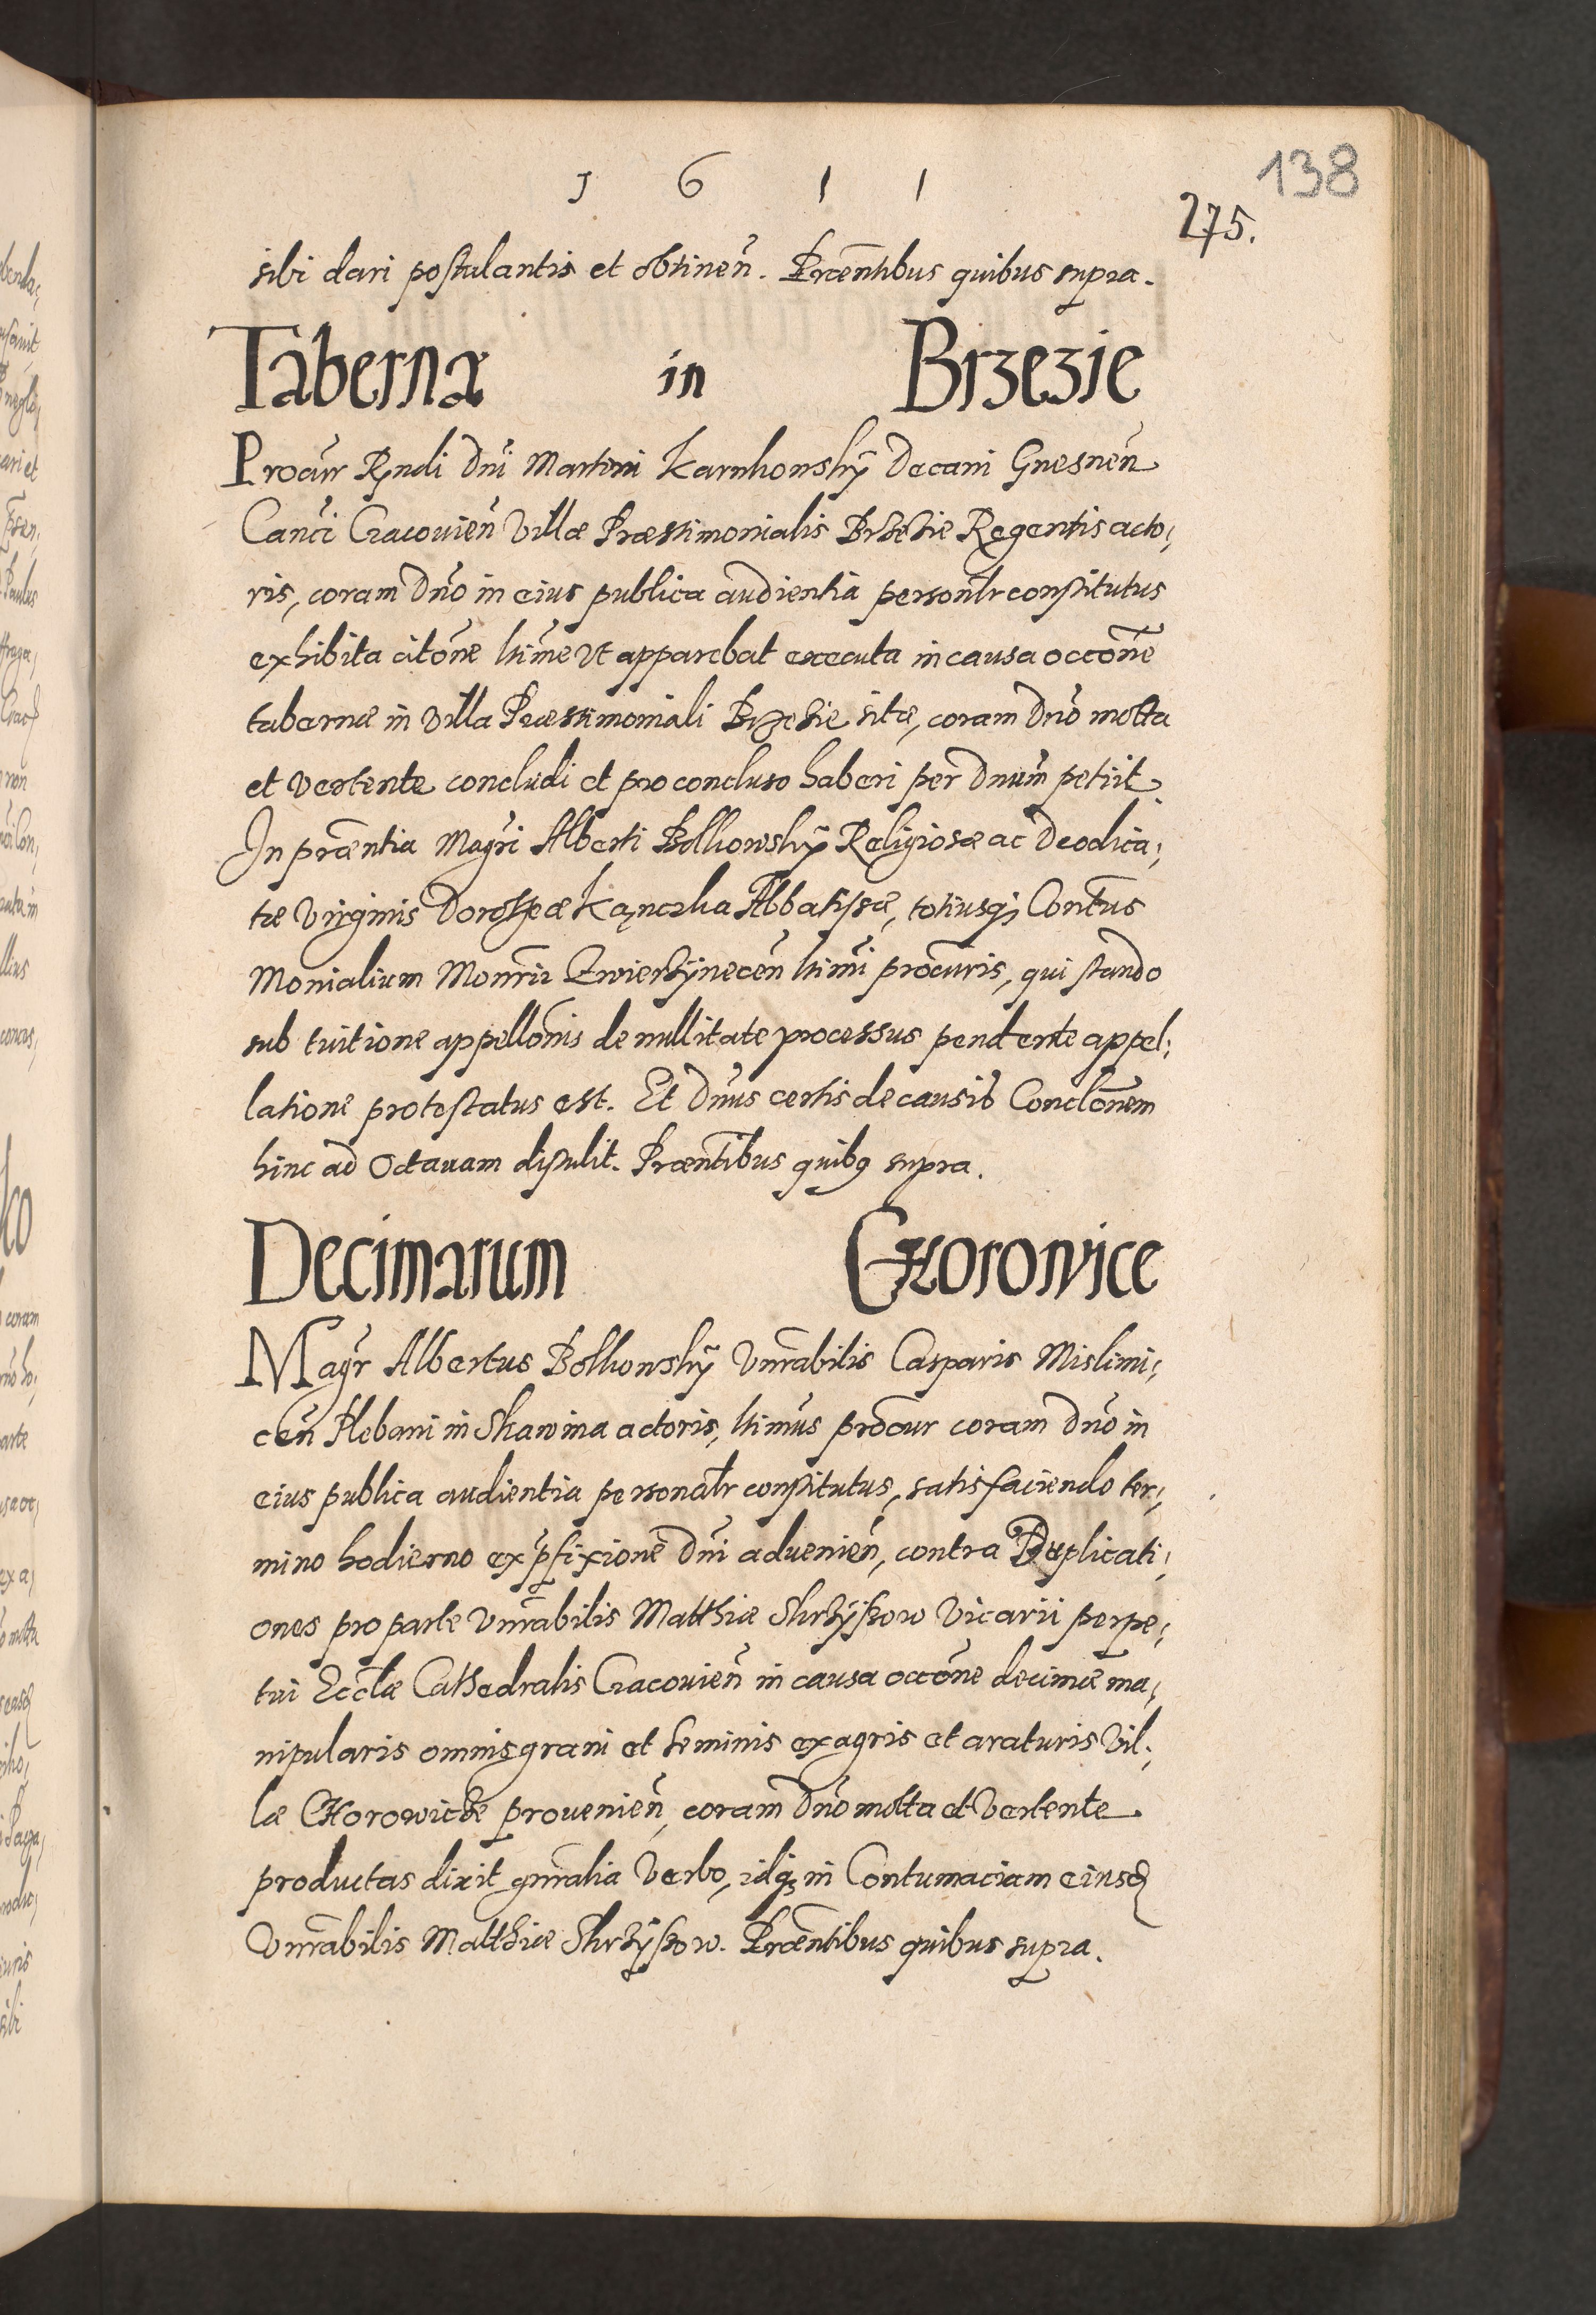 138
1 6 1 1
275.
sibi dari postulantis et obtineñ. Præntibus quibus supra.
Tabernæ in Brzezie
Procur Rndi Dni Martini Karnkowskÿ Decani Gnesneñ
Canci Cracovieñ Villæ Præstimonialis Brzezie Regentis acto;
ris, coram Dño in eius publica audientia personlr constitutus
exhibita citone ltime vt apparebat executa in causa occōne
tabernæ in villa Præstimoniali Brzezie sitæ, coram Dño motta
et vertente concludi et pro concluso haberi per Dnum petiit.
In præntia Magri Alberti Bolkowskÿ Religiosæ ac Deodica;
tæ Virginis Dorotheæ Kączcka Abbatissæ, totiusqȝ Contus
Monialium Monrii Zwierzÿneceñ ltimi procuris, qui stando
sub tuitione appellonis de nullitate processus pendente appel;
latione protestatus est. Et Dnus certis de causis Conclonem
hinc ad Octavam distulit. Præntibus quibꝰ supra.
Decimarum Chorowice
Magr Albertus Bolkowskÿ Vnrabilis Casparis Mislimi;
ceñ Plebani in Skawina actoris, ltimus procur coram Dño in
eius publica audientia personalr constitutus, satisfaciendo ter;
mino hodierno ex pfixione Dni advenieñ, contra Duplicati;
ones pro parte Vnrabilis Matthiæ Skrzÿszow Vicarii perpe;
tui Ecclæ Cathedralis Cracovieñ in causa occōne decimæ ma;
nipularis omnis grani et seminis ex agris et araturis Vil;
læ Chorowicze provenieñ, coram Dño motta et vertente
productas dixit gnralia verbo, idqȝ in Contumaciam eiusd
Vnrabilis Matthiæ Skrzÿszow. Præntibus quibus supra.